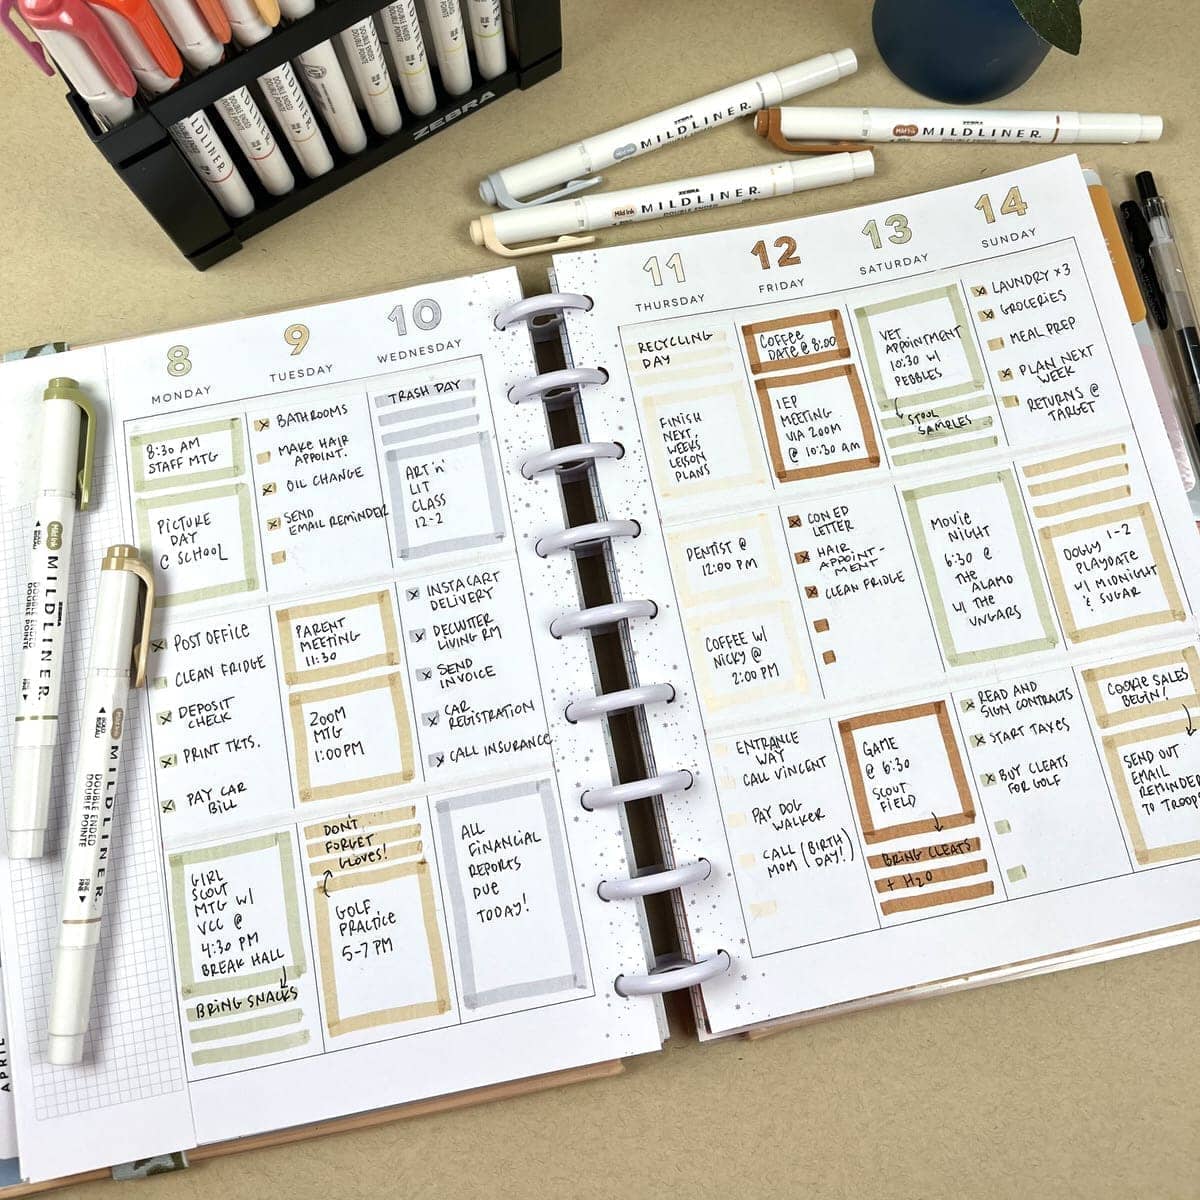 ZEBRA
ZEBRA
MILDLINER.
DOUBLE ENDED
Mild Ink
ZEBRA
MILDLINER.
DOUBLE ENDED
Mild Ink
ZEBRA
MILDLINER.
DOUBLE ENDED
Mild Ink
MILDLINER.
DOUBLE ENDED
DOUBLE POINTE
Mild Ink
MILDLINER.
DOUBLE ENDED
DOUBLE POINTE
FINE
FINE
APRIL
8
MONDAY
8:30 AM
STAFF MTG
PICTURE
DAY
@ SCHOOL
POST OFFICE
CLEAN FRIDGE
DEPOSIT
CHECK
PRINT TKTS.
PAY CAR
BILL
GIRL
SCOUT
MTG W/
VCC @
4:30 PM
BREAK HALL
BRING SNACKS
9
TUESDAY
BATHROOMS
MAKE HAIR
APPOINT.
OIL CHANGE
SEND
EMAIL REMINDER
PARENT
MEETING
11:30
ZOOM
MTG
1:00PM
DON'T
FORGET
GLOVES!
GOLF
PRACTICE
5-7 PM
10
WEDNESDAY
TRASH DAY
ART 'n'
LIT
CLASS
12-2
INSTACART
DELIVERY
DECLUTTER
LIVING RM
SEND
INVOICE
CAR
REGISTRATION
CALL INSURANCE
ALL
FINANCIAL
REPORTS
DUE
TODAY!
11
THURSDAY
RECYCLING
DAY
FINISH
NEXT
WEEKS
LESSON
PLANS
DENTIST @
12:00 PM
COFFEE W/
NICKY @
2:00 PM
ENTRANCE
WAY
CALL VINCENT
PAY DOG
WALKER
CALL (BIRTH
MOM DAY!)
12
FRIDAY
COFFEE
DATE @ 8:00
IEP
MEETING
VIA ZOOM
@ 10:30 am
CON ED
LETTER
HAIR
APPOINT-
MENT
CLEAN FRIDGE
GAME
@ 6:30
SCOUT
FIELD
BRING CLEATS
+ H2O
13
SATURDAY
VET
APPOINTMENT
10:30 W/
PEBBLES
STOOL
SAMPLES
MOVIE
NIGHT
6:30 @
THE
ALAMO
W/ THE
UNGARS
READ AND
SIGN CONTRACTS
START TAXES
BUY CLEATS
FOR GOLF
14
SUNDAY
LAUNDRY x3
GROCERIES
MEAL PREP
PLAN NEXT
WEEK
RETURNS @
TARGET
DOGGY 1-2
PLAYDATE
W/ MIDNIGHT
& SUGAR
COOKIE SALES
BEGIN!
SEND OUT
EMAIL
REMINDER
TO TROOP